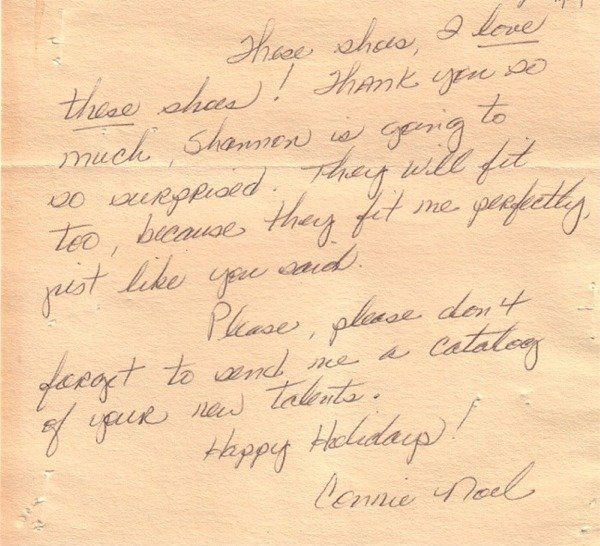 These shoes, I love
these shoes! Thank you so
much, Shannon is going to
so surprised. They will fit
too, because they fit me perfectly,
just like you said.
Please, please don't
forget to send me a catalog
of your new talents.
Happy Holidays!
Connie Noel